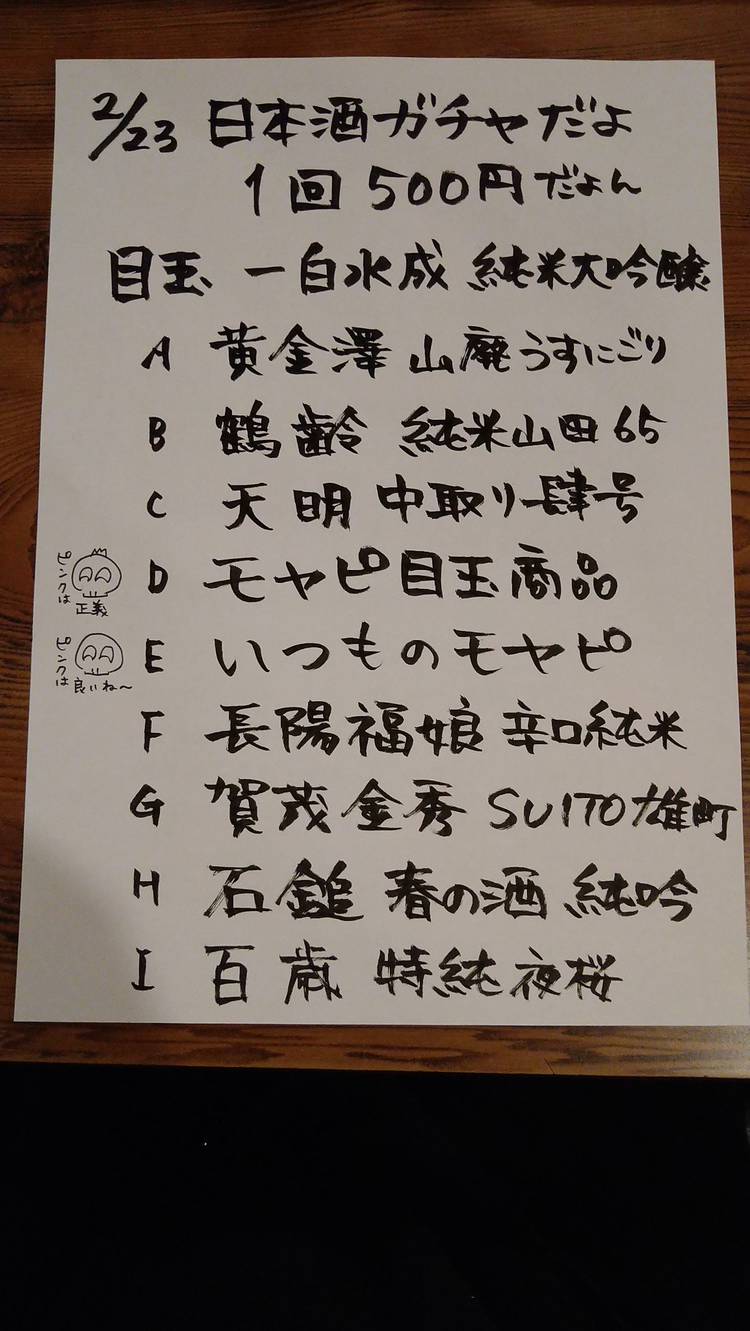 2/23 日本酒ガチャだよ
1回 500円だよん
目玉 一白水成 純米大吟醸
A 黄金澤 山廃うすにごり
B 鶴齢 純米山田65
C 天明 中取り肆号
D モヤピ目玉商品
ピンクは
正義
E いつものモヤピ
ピンクは
良いね〜
F 長陽福娘 辛口純米
G 賀茂金秀 SUITO雄町
H 石鎚 春の酒 純吟
I 百歳 特純夜桜